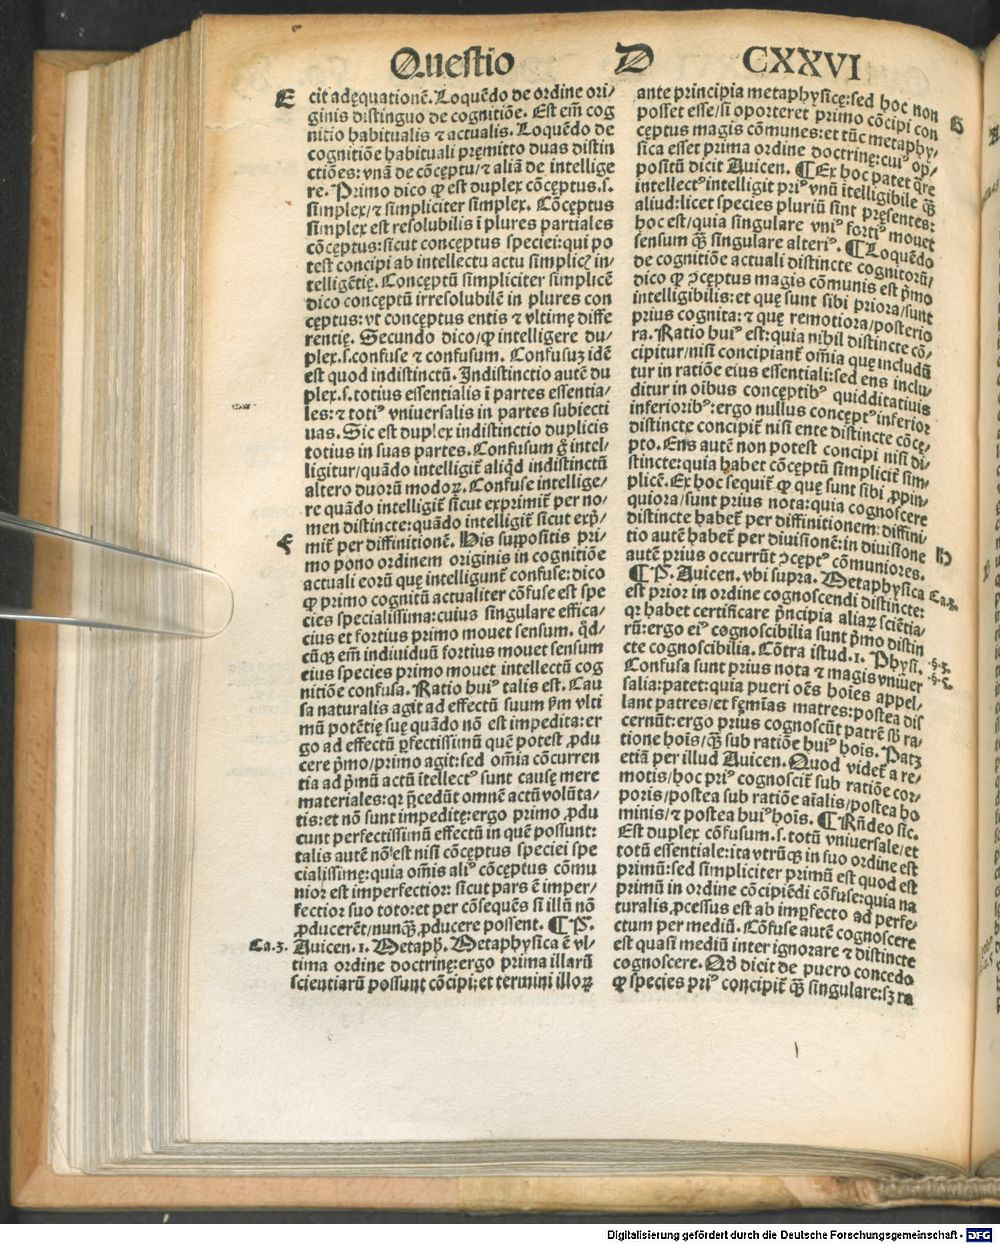 Questio D CXXVI
E
cit adęquationē. Loquēdo de ordine ori/
ginis distinguo de cognitiōe. Est em̄ cog
nitio habitualis ⁊ actualis. Loquēdo de
cognitiōe habituali pręmitto duas distin
ctiōes: vnā de cōceptu/⁊ aliā de intellige
re. Primo dico ꝙ est duplex cōceptus .s.
simplex/⁊ simpliciter simplex. Cōceptus
simplex est resolubilis ī plures partiales
cōceptus: sicut conceptus speciei: qui po
test concipi ab intellectu actu simplicꝭ in/
telligētię. Conceptū simpliciter simplicē
dico conceptū irresolubilē in plures con
ceptus: vt conceptus entis ⁊ vltimę diffe
rentię. Secundo dico/ꝙ intelligere du/
plex .s. confuse ⁊ confusum. Confusuꝫ idē
est quod indistinctū. Indistinctio autē du
plex .s. totius essentialis ī partes essentia/
les: ⁊ totiꝰ vniuersalis in partes subiecti
uas. Sic est duplex indistinctio duplicis
totius in suas partes. Confusum g̊ intel/
ligitur/quādo intelligit᷑ aliqd̄ indistinctū
altero duorū modoꝝ. Confuse intellige/
re quādo intelligit᷑ sicut exprimit᷑ per no/
men distincte: quādo intelligit᷑ sicut exp̄/
F
mit᷑ per diffinitionē. His suppositis pri/
mo pono ordinem originis in cognitiōe
actuali eorū quę intelligunt᷑ confuse: dico
ꝙ primo cognitū actualiter cōfuse est spe
cies specialissima: cuius singulare effica/
cius et fortius primo mouet sensum. qd̄/
cūqꝫ em̄ indiuiduū fortius mouet sensum
eius species primo mouet intellectū cog
nitiōe confusa. Ratio huiꝰ talis est. Cau
sa naturalis agit ad effectū suum ꝓm vlti
mū potētię suę quādo nō est impedita: er
go ad effectū ꝑfectissimū quē potest ꝓdu
cere pͥmo/primo agit: sed om̄ia cōcurren
tia ad pͥmū actū ītellectꝰ sunt causę mere
materiales: qꝛ p̄cedūt omnē actū volūta/
tis: et nō sunt impeditę: ergo primo ꝓdu
cunt perfectissimū effectū in quē possunt:
talis autē nō est nisi cōceptus speciei spe
cialissimę: quia om̄is aliꝰ cōceptus cōmu
nior est imperfectior: sicut pars ē imper/
fectior suo toto: et per cōsequēs si illū nō
ꝓducerēt/nunqꝫ̄ ꝓducere possent. ¶ P̄.
Ca.3. Auicen. 1. Metaph. Metaphysica ē vl/
tima ordine doctrinę: ergo prima illarū
scientiarū possunt cōcipi: et termini illoꝝ
ante principia metaphysicę: sed hoc non
G
posset esse/si oporteret primo cōcipi con
ceptus magis cōmunes: et tūc metaphy/
sica esset prima ordine doctrinę: cuiꝰ op/
positū dicit Auicen. ¶ Ex hoc patet q̄re
intellectꝰ intelligit priꝰ vnū ītelligibile qꝫ̄
aliud: licet species pluriū sint pręsentes:
hoc est/quia singulare vniꝰ fortiꝰ mouet
sensum qꝫ̄ singulare alteriꝰ. ¶ Loquēdo
de cognitiōe actuali distincte cognitorū/
dico ꝙ ꝯceptus magis cōmunis est pͥmo
intelligibilis: et quę sunt sibi priora/sunt
prius cognita: ⁊ quę remotiora/posterio
ra. Ratio huiꝰ est: quia nihil distincte cō/
cipitur/nisi concipiant᷑ om̄ia quę includū
tur in ratiōe eius essentiali: sed ens inclu/
ditur in oībus conceptibꝰ quidditatiuis
inferioribꝰ: ergo nullus conceptꝰ inferior
distincte concipit᷑ nisi ente distincte cōce/
pto. Ens autē non potest concipi nisi di/
stincte: quia habet cōceptū simplicit᷑ sim/
plicē. Ex hoc sequit᷑ ꝙ quę sunt sibi ꝓpin/
quiora/sunt prius nota: quia cognoscere
distincte habet᷑ per diffinitionem: diffini/
tio autē habet᷑ per diuisionē: in diuisione
H
autē prius occurrūt ꝯceptꝰ cōmuniores.
¶ P̄. Auicen. vbi supra. Metaphysica Ca.3.
est prior in ordine cognoscendi distincte:
qꝛ habet certificare pͥncipia aliaꝝ sciētia/
rū: ergo eiꝰ cognoscibilia sunt pͥmo distin
cte cognoscibilia. Cōtra istud. 1. Physi. .§.3.
Confusa sunt prius nota ⁊ magis vniuer .§.5.
salia: patet: quia pueri oēs hoīes appel/
lant patres/et fęmīas matres: postea dis
cernūt: ergo prius cognoscūt patrē sb̄ ra/
tione hoīs/qꝫ̄ sub ratiōe huiꝰ hoīs. Patꝫ
etiā per illud Auicen. Quod videt᷑ a re/
motis/hoc priꝰ cognoscit᷑ sub ratiōe cor/
poris/postea sub ratiōe aīalis/postea ho
minis/⁊ postea huiꝰ hoīs. ¶ Rn̄deo sic.
Est duplex cōfusum .s. totū vniuersale/et
totū essentiale: ita vtrūqꝫ in suo ordine est
primū: sed simpliciter primū est quod est
primū in ordine cōcipiēdi cōfuse: quia na
turalis ꝓcessus est ab imꝑfecto ad perfe/
ctum per mediū. Cōfuse autē cognoscere
est quasi mediū inter ignorare ⁊ distincte
cognoscere. Qd̄ dicit de puero concedo
ꝙ species priꝰ concipit᷑ qꝫ̄ singulare: sꝫ ra
Digitalisierung gefördert durch die Deutsche Forschungsgemeinschaft - DFG